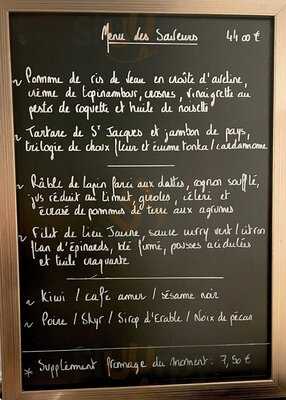 Menu des Saveurs 44.00 €
~ Pomme de ris de veau en croûte d'aveline,
crème de topinambour, crosnes, vinaigrette au
pesto de roquette et huile de noisette
~ Tartare de St Jacques et jambon de pays,
trilogie de choux fleur et écume tonka / cardamome
~ Râble de lapin farci aux dattes, rognon soufflé,
jus réduit au limut, girolles, céleri et
écrasé de pommes de terre aux agrumes
~ Filet de Lieu Jaune, sauce curry vert / citron
flan d'épinards, blé fumé, pousses acidulées
et tuile craquante
~ Kiwi / café amer / sésame noir
~ Poire / Skyr / Sirop d'Erable / Noix de pécan
* Supplément fromage du moment : 7,50 €